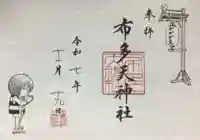 奉拝
布多天神社
令和七年
十一月十九日